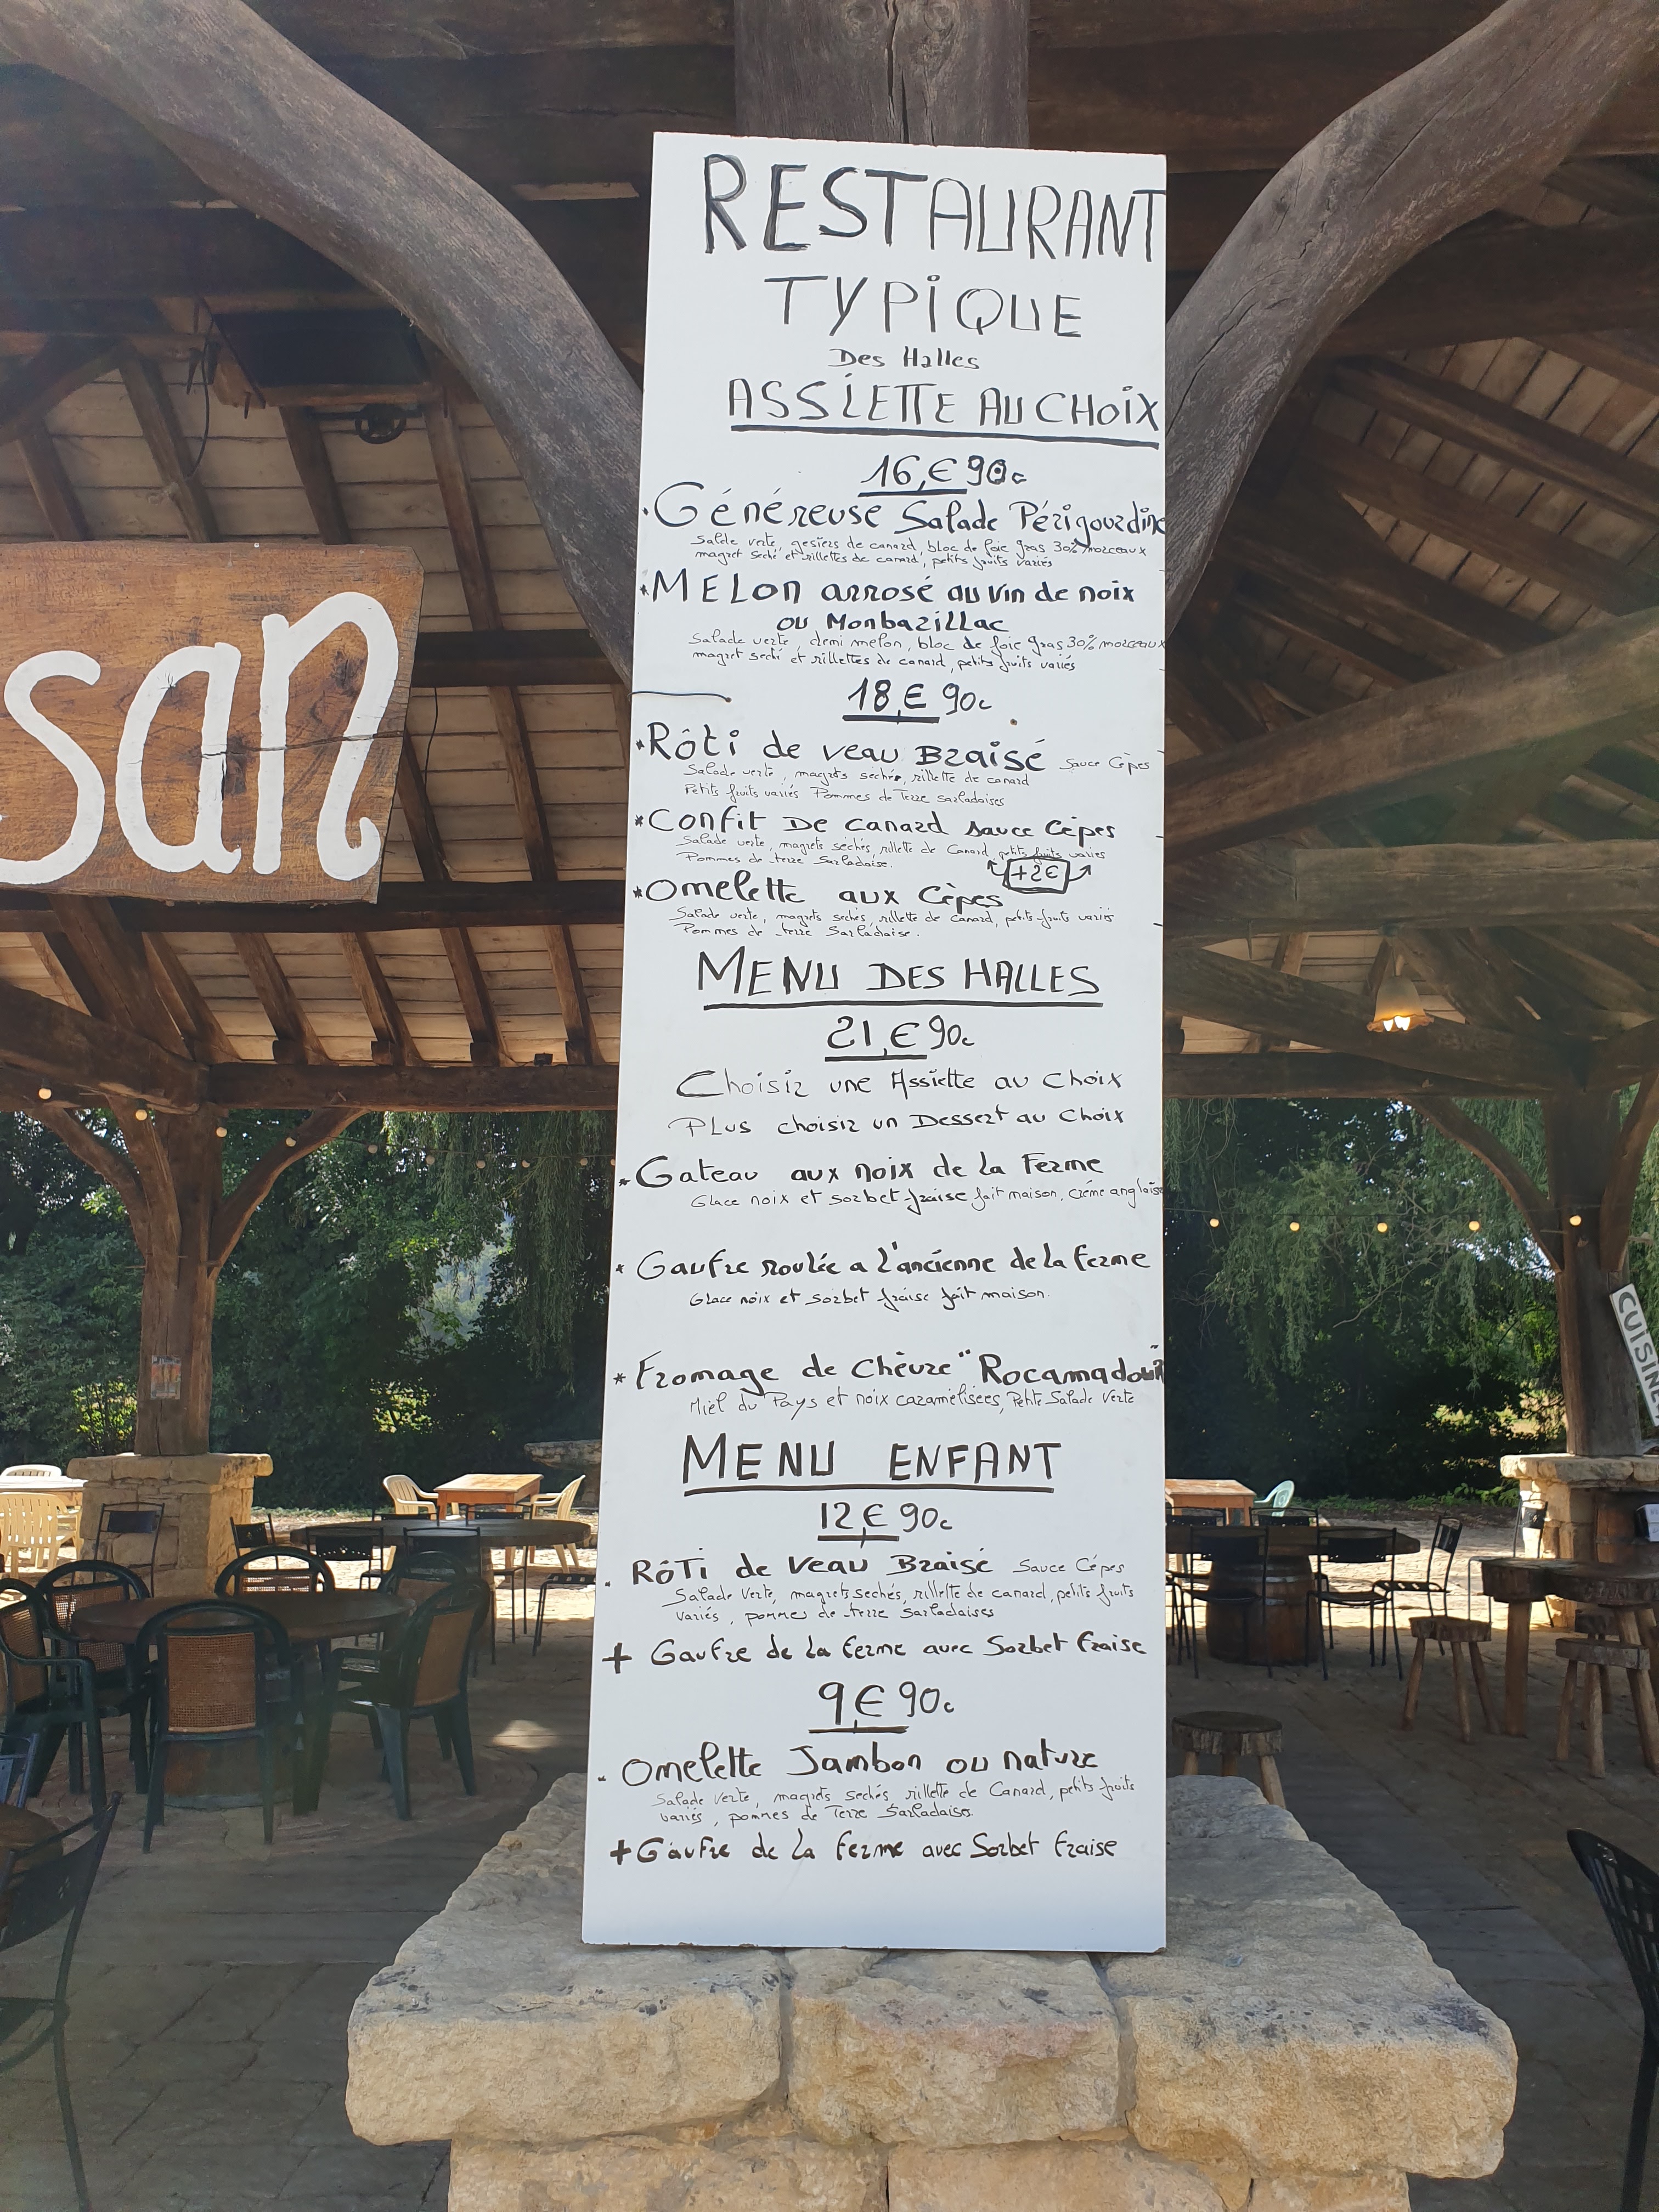 RESTAURANT
TYPIQUE
Des Halles
ASSIETTE AU CHOIX
16,€90c
Généreuse Salade Périgourdine
Salde verte, gesiers de canard, bloc de foie gras 30% morceaux
magret seché et rillettes de canard, petits fruits variés
*MELON arrosé au vin de noix
ou Monbazillac
Salade verte, demi melon, bloc de foie gras 30% morceaux
magret seché et rillettes de canard, petits fruits variés
18,€90c
*Rôti de veau Braisé Sauce Cèpes
Salade verte, magrets séchés, rillette de canard
Petits fruits variés Pommes de Terre sarladaises
*Confit De canard sauce Cèpes
Salade verte, magrets séchés, rillette de Canard, petits fruits variés
Pommes de terre Sarladaise.
+2€
*Omelette aux Cèpes
Salade verte, magrets sechés, rillette de canard, petits fruits variés
Pommes de terre Sarladaise.
MENU DES HALLES
21,€90c
Choisir une Assiette au Choix
PLUS choisir un Dessert au Choix
*Gateau aux noix de la Ferme
Glace noix et sorbet fraise fait maison, crème anglaise
* Gaufre roulée a l'ancienne de la ferme
Glace noix et sorbet fraise fait maison.
*Fromage de Chèvre "Rocamadour"
Miel du Pays et noix caramélisées, Petite Salade Verte
MENU ENFANT
12,€90c
. RôTi de Veau Braisé Sauce Cépes
Salade Verte, magrets sechés, rillette de canard, petits fruits
variés, pommes de terre Sarladaises
+ Gaufre de la ferme avec Sorbet fraise
9,€90c
- Omelette Jambon ou nature
Salade Verte, magrets sechés, rillette de Canard, petits fruits
variés, pommes de Terre Sarladaises.
+Gaufre de la ferme avec Sorbet fraise
san
CUISINE